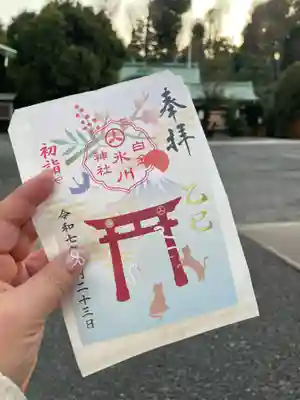 奉拝
乙巳
白金
氷川
神社
初詣
令和七年
月二十三日